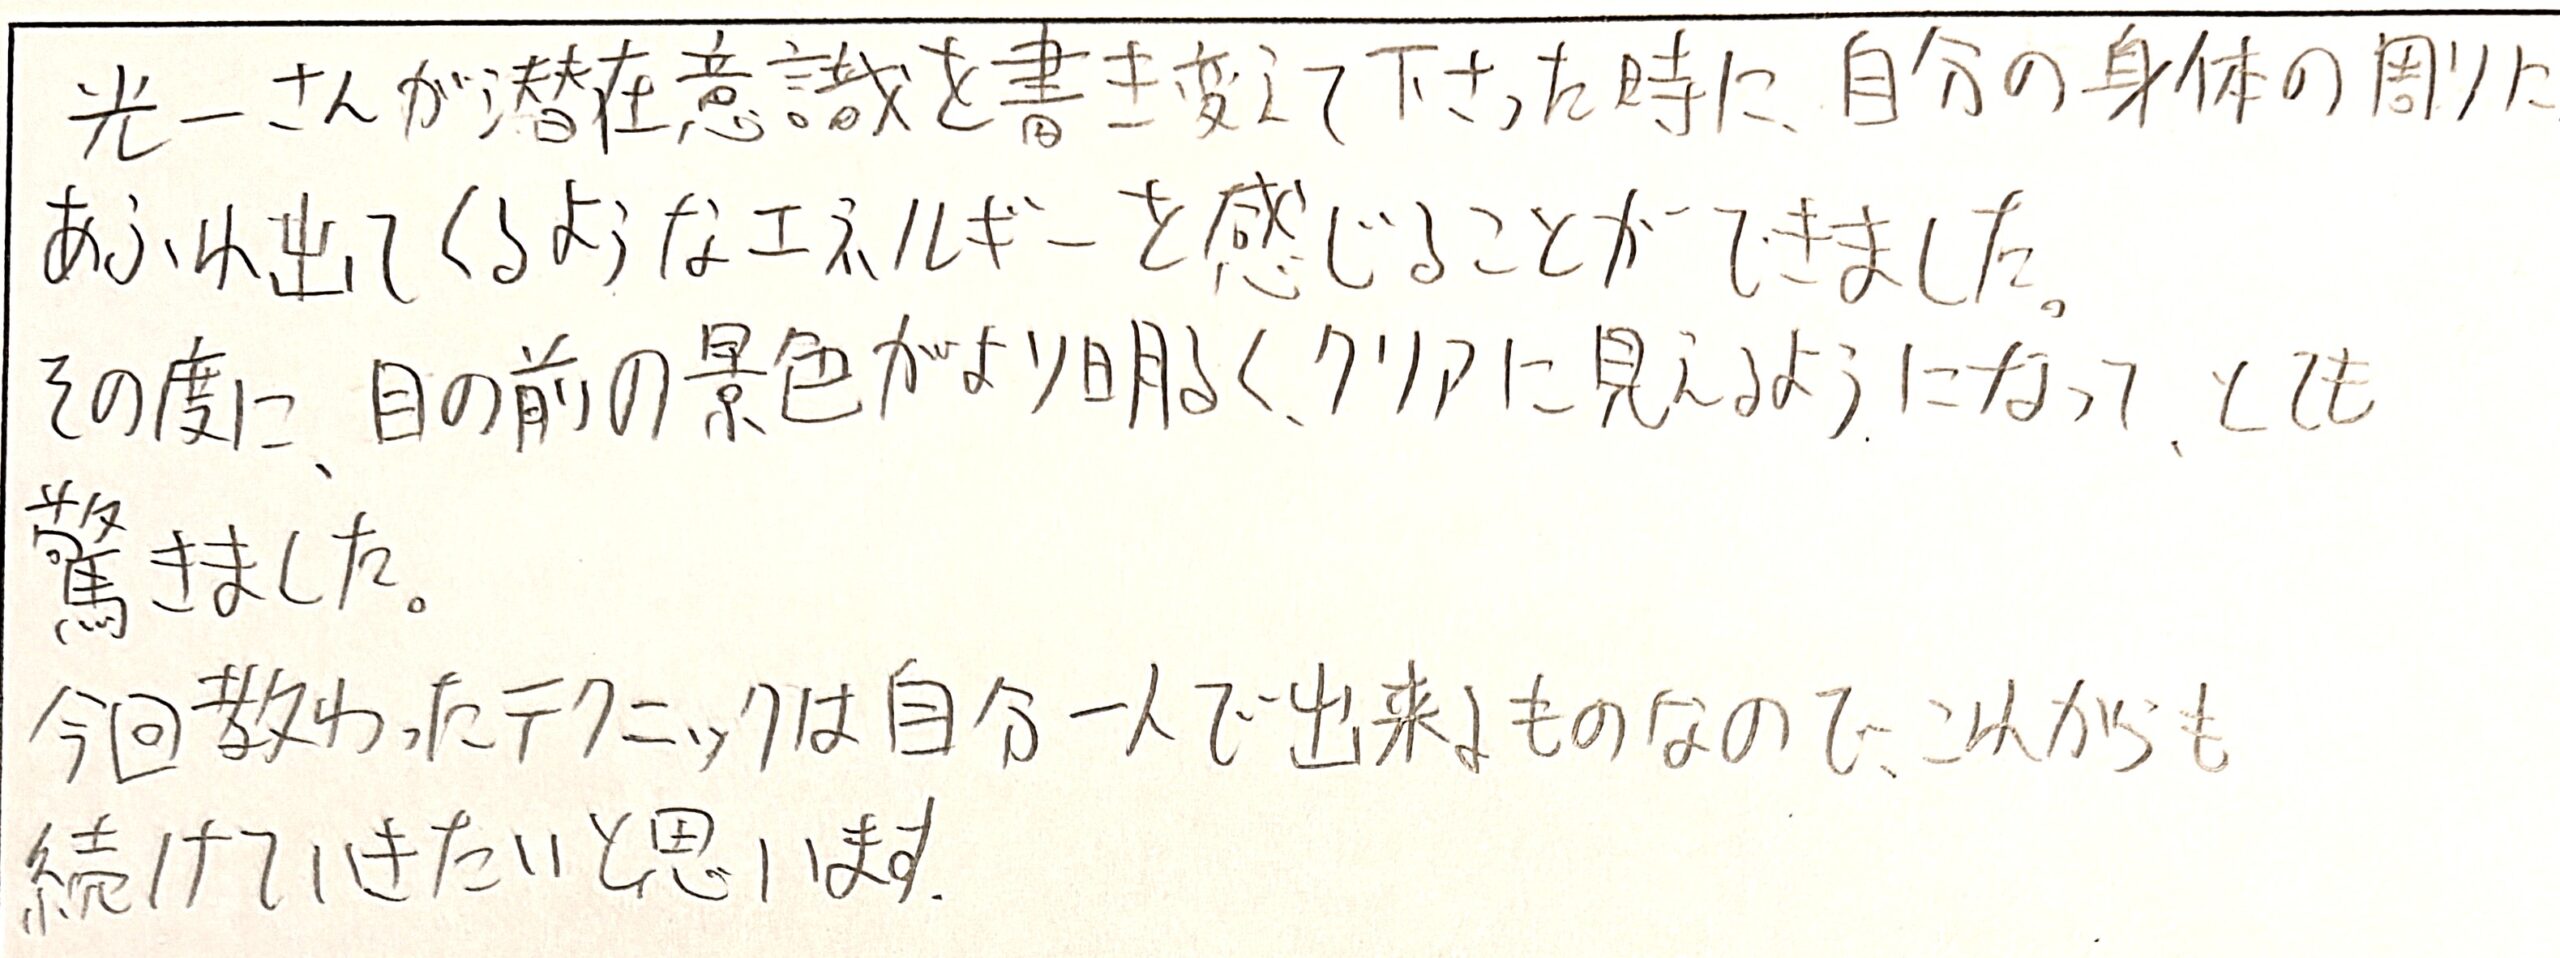 光一さんが潜在意識を書き変えて下さった時に、自分の身体の周りに
あふれ出てくるようなエネルギーを感じることができました。
その度に、目の前の景色がより明るく、クリアに見えるようになって、とても
驚きました。
今回教わったテクニックは自分一人で出来るものなので、これからも
続けていきたいと思います.